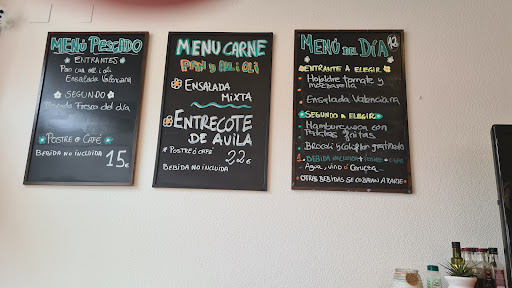 MENÚ PESCADO
ENTRANTES
PAN CON ALIOLI
ENSALADA VALENCIANA
SEGUNDO
Pescado Fresco del día
POSTRE O CAFÉ
BEBIDA NO INCLUIDA 15€
MENU CARNE
PAN Y ALIOLI
ENSALADA
MIXTA
ENTRECOTE
DE AVILA
POSTRE O CAFÉ 22€
BEBIDA NO INCLUIDA
MENÚ DEL DÍA 12
ENTRANTE A ELEGIR
Hojaldre tomate y
mozzarella
Ensalada Valenciana
SEGUNDO A ELEGIR
Hamburguesa con
patatas fritas
Brocoli y coliflor gratinada
1 BEBIDA INCLUIDA + POSTRE o CAFE
Agua, vino o Cerveza
OTRAS BEBIDAS SE COBRAN A PARTE